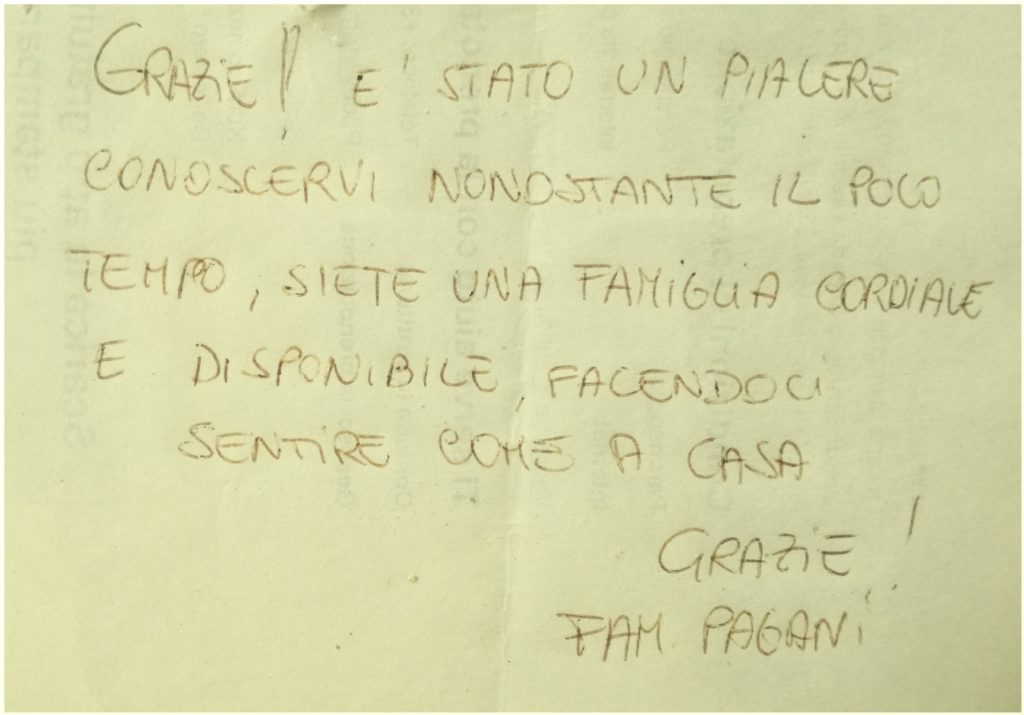 GRAZIE!! E' STATO UN PIACERE
CONOSCERVI NONOSTANTE IL POCO
TEMPO, SIETE UNA FAMIGLIA CORDIALE
E DISPONIBILE, FACENDOCI
SENTIRE COME A CASA
GRAZIE!
FAM PAGANI